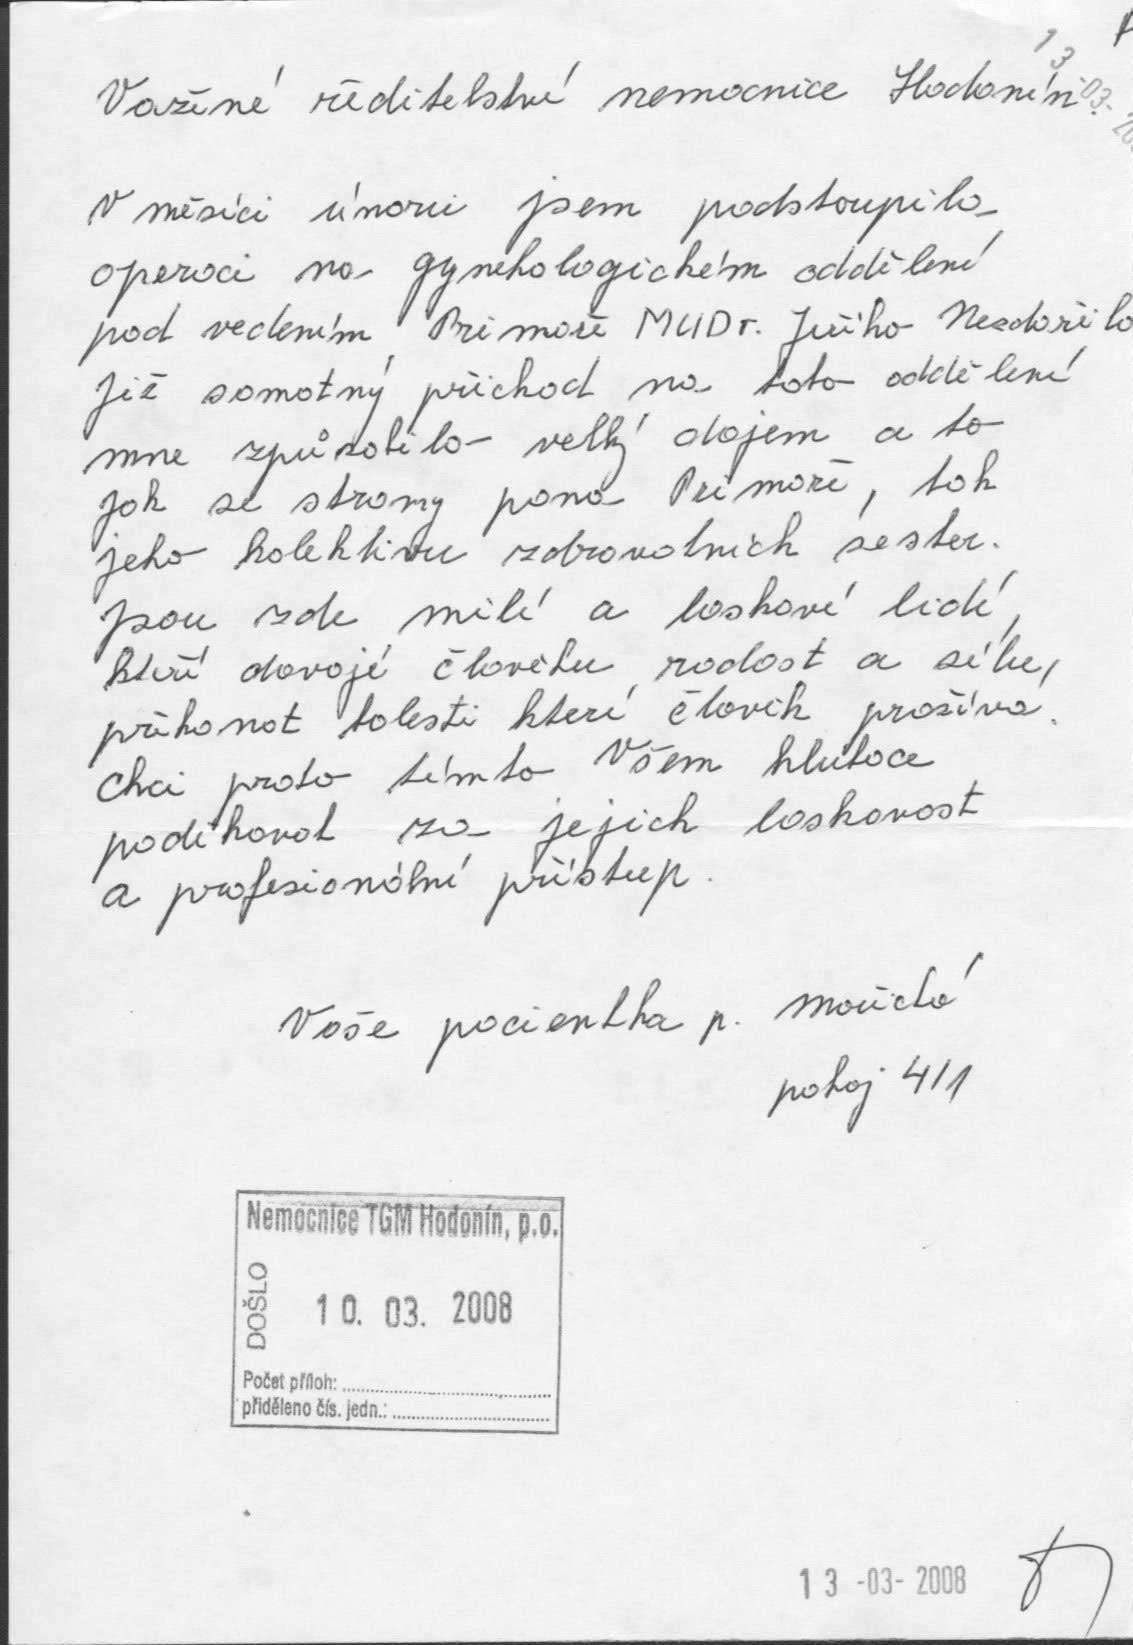 13
03-
Vážené ředitelství nemocnice Hodonín.
V měsíci únoru jsem podstoupila
operaci na gynekologickém oddělení
pod vedením Primáře MUDr. Jiřího Nezdařila
Již samotný příchod na toto oddělení
mne způsobilo velký dojem a to
jak se strany pana Primáře, tak
jeho kolektivu zdravotních sester.
Jsou zde milí a laskaví lidé,
kteří davají člověku radost a sílu,
překonat bolesti které člověk prožívá.
Chci proto tímto Všem hluboce
poděkovat za jejich laskavost
a profesionální přístup.
Vaše pacientka p.
pokoj 4/1
Nemocnice TGM Hodonín, p.o.
DOŠLO
10. 03. 2008
Počet příloh:
přiděleno čís. jedn.:
13 -03- 2008